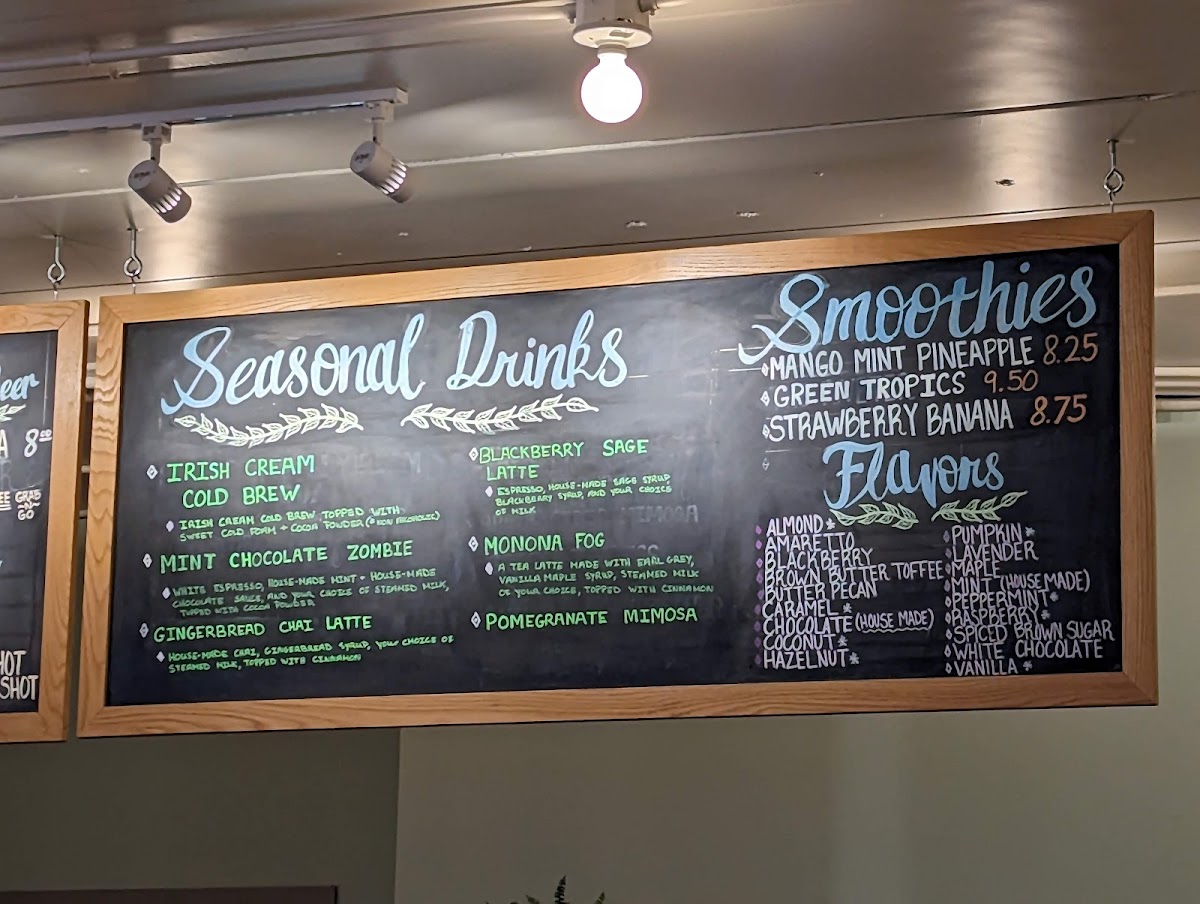 eer
A 8.00
GRAB
-N-
GO
HOT
SHOT
Seasonal Drinks
IRISH CREAM
COLD BREW
IRISH CREAM COLD BREW TOPPED WITH
SWEET COLD FOAM + COCOA POWDER (*NON ALCOHOLIC)
MINT CHOCOLATE ZOMBIE
WHITE ESPRESSO, HOUSE-MADE MINT + HOUSE-MADE
CHOCOLATE SAUCE, AND YOUR CHOICE OF STEAMED MILK,
TOPPED WITH COCOA POWDER
GINGERBREAD CHAI LATTE
HOUSE-MADE CHAI, GINGERBREAD SYRUP, YOUR CHOICE OF
STEAMED MILK, TOPPED WITH CINNAMON
BLACKBERRY SAGE
LATTE
ESPRESSO, HOUSE-MADE SAGE SYRUP
BLACKBERRY SYRUP, AND YOUR CHOICE
OF MILK
MONONA FOG
A TEA LATTE MADE WITH EARL GREY,
VANILLA MAPLE SYRUP, STEAMED MILK
OF YOUR CHOICE, TOPPED WITH CINNAMON
POMEGRANATE MIMOSA
Smoothies
MANGO MINT PINEAPPLE 8.25
GREEN TROPICS 9.50
STRAWBERRY BANANA 8.75
Flavors
ALMOND*
AMARETTO
BLACKBERRY
BROWN BUTTER TOFFEE
BUTTER PECAN
CARAMEL*
CHOCOLATE (HOUSE MADE)
COCONUT*
HAZELNUT*
PUMPKIN*
LAVENDER
MAPLE
MINT (HOUSE MADE)
PEPPERMINT*
RASPBERRY*
SPICED BROWN SUGAR
WHITE CHOCOLATE
VANILLA*